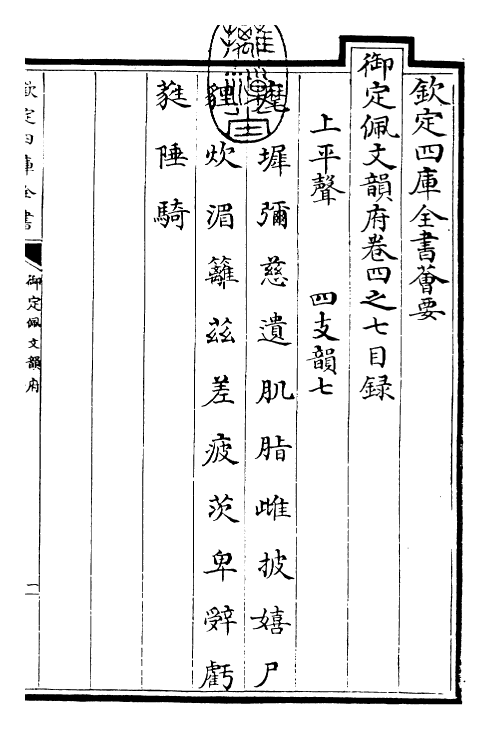 欽定四庫全書薈要
御定佩文韻府卷四之七目録
上平聲 四支韻七
麾墀彌慈遺肌脂雌披嬉尸
貍炊湄籬兹差疲茨卑辤虧
蕤陲騎
欽定四庫全書
御定佩文韻府
一